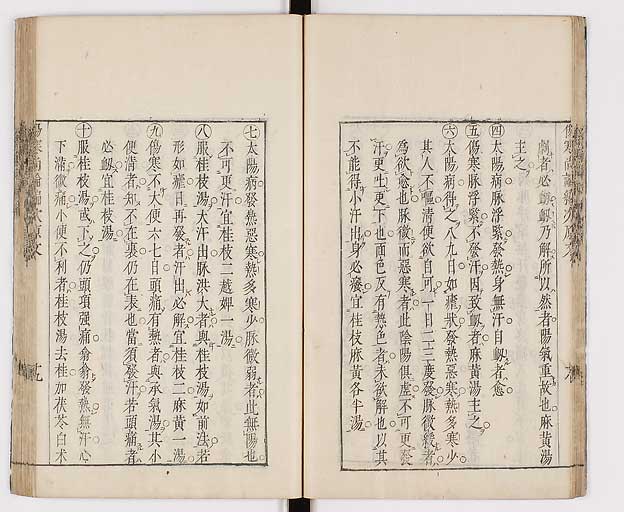 劇者必衂衂乃解所以然者陽氣重故也麻黃湯
主之
㊃太陽病脉浮緊發熱身無汗自衂者愈
㊄傷寒脉浮緊不發汗因致衂者麻黃湯主之
㊅太陽病得之八九日如瘧狀發熱惡寒熱多寒少
其人不嘔淸便欲自可一日二三度發脉微緩者
為欲愈也脉微而惡寒者此陰陽俱虛不可更發
汗更吐更下也面色反有熱色者未欲解也以其
不能得小汗出身必癢宜桂枝麻黃各半湯
㊆太陽病發熱惡寒熱多寒少脉微弱者此無陽也
不可更汗宜桂枝二越婢一湯
㊇服桂枝湯大汗出脉洪大者與桂枝湯如前法若
形如瘧日再發者汗出必解宜桂枝二麻黃一湯
㊈傷寒不大便六七日頭痛有熱者與承氣湯其小
便淸者知不在裏仍在表也當須發汗若頭痛者
必衂宜桂枝湯
㊉服桂枝湯或下之仍頭項强痛翕翕發熱無汗心
下滿微痛小便不利者桂枝湯去桂加茯苓白朮